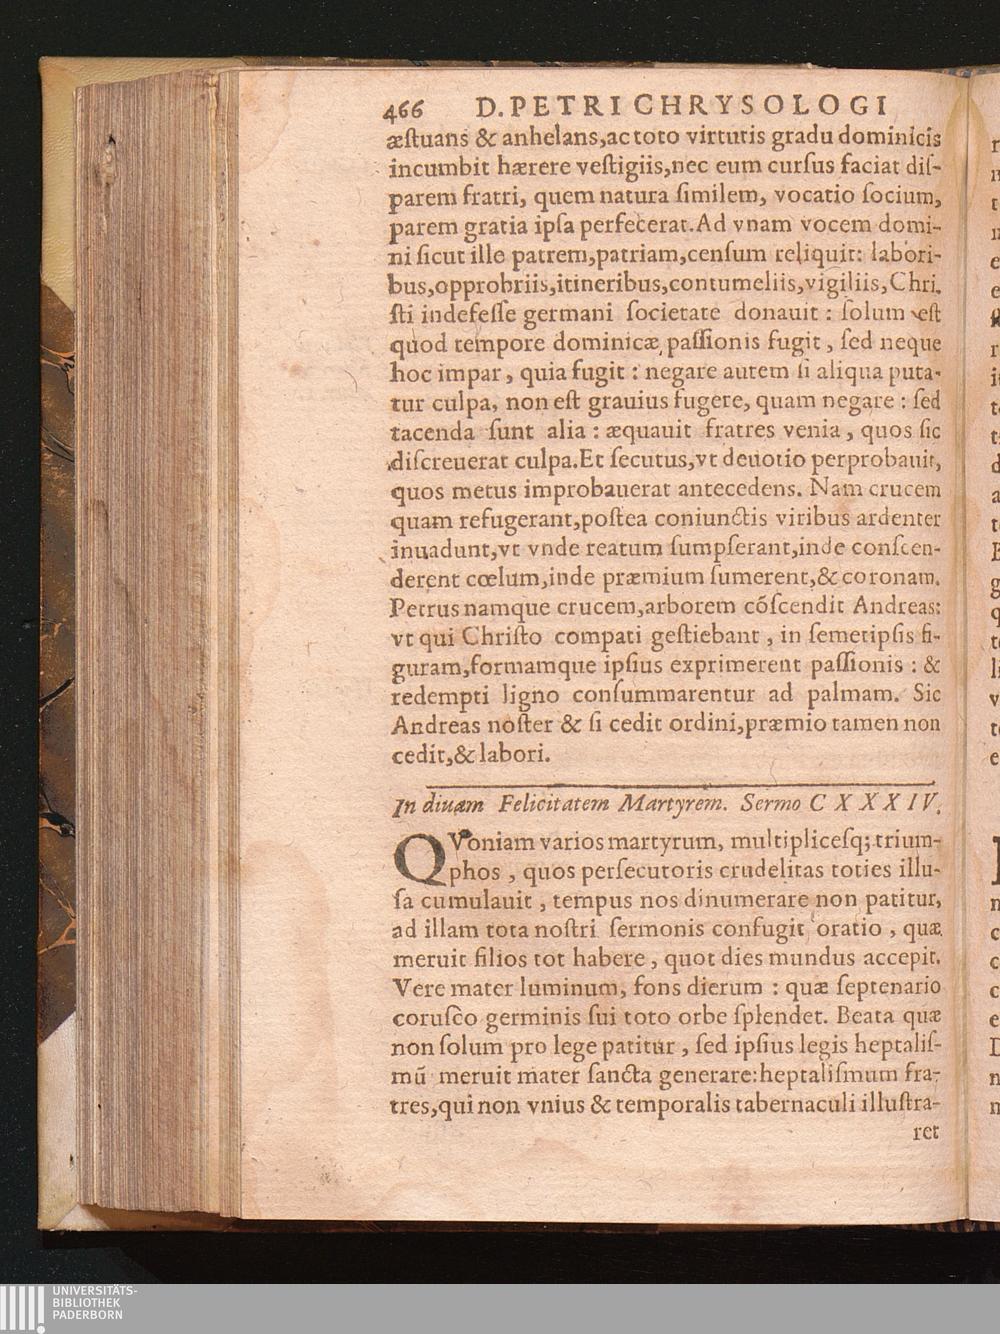 466 D. PETRI CHRYSOLOGI
æſtuans & anhelans, ac toto virtutis gradu dominicis
incumbit hærere veſtigiis, nec eum curſus faciat diſ-
parem fratri, quem natura ſimilem, vocatio ſocium,
parem gratia ipſa perfecerat. Ad vnam vocem domi-
ni ſicut ille patrem, patriam, cenſum reliquit: labori-
bus, opprobriis, itineribus, contumeliis, vigiliis, Chri-
ſti indefeſſe germani ſocietate donauit : ſolum eſt
quod tempore dominicæ paſſionis fugit, ſed neque
hoc impar, quia fugit : negare autem ſi aliqua puta-
tur culpa, non eſt grauius fugere, quam negare : ſed
tacenda ſunt alia : æquauit fratres venia, quos ſic
diſcreuerat culpa. Et ſecutus, vt deuotio perprobauit,
quos metus improbauerat antecedens. Nam crucem
quam refugerant, poſtea coniunctis viribus ardenter
inuadunt, vt vnde reatum ſumpſerant, inde conſcen-
derent cœlum, inde præmium ſumerent, & coronam.
Petrus namque crucem, arborem cõſcendit Andreas:
vt qui Chriſto compati geſtiebant, in ſemetipſis fi-
guram, formamque ipſius exprimerent paſſionis : &
redempti ligno conſummarentur ad palmam. Sic
Andreas noſter & ſi cedit ordini, præmio tamen non
cedit, & labori.
In diuam Felicitatem Martyrem. Sermo CXXXIV.
QVoniam varios martyrum, multipliceſq; trium-
phos, quos perſecutoris crudelitas toties illu-
ſa cumulauit, tempus nos dinumerare non patitur,
ad illam tota noſtri ſermonis confugit oratio, quæ
meruit filios tot habere, quot dies mundus accepit.
Vere mater luminum, fons dierum : quæ ſeptenario
coruſco germinis ſui toto orbe ſplendet. Beata quæ
non ſolum pro lege patitur, ſed ipſius legis heptaliſ-
mũ meruit mater ſancta generare: heptaliſmum fra-
tres, qui non vnius & temporalis tabernaculi illuſtra-
ret
UNIVERSITÄTS-
BIBLIOTHEK
PADERBORN